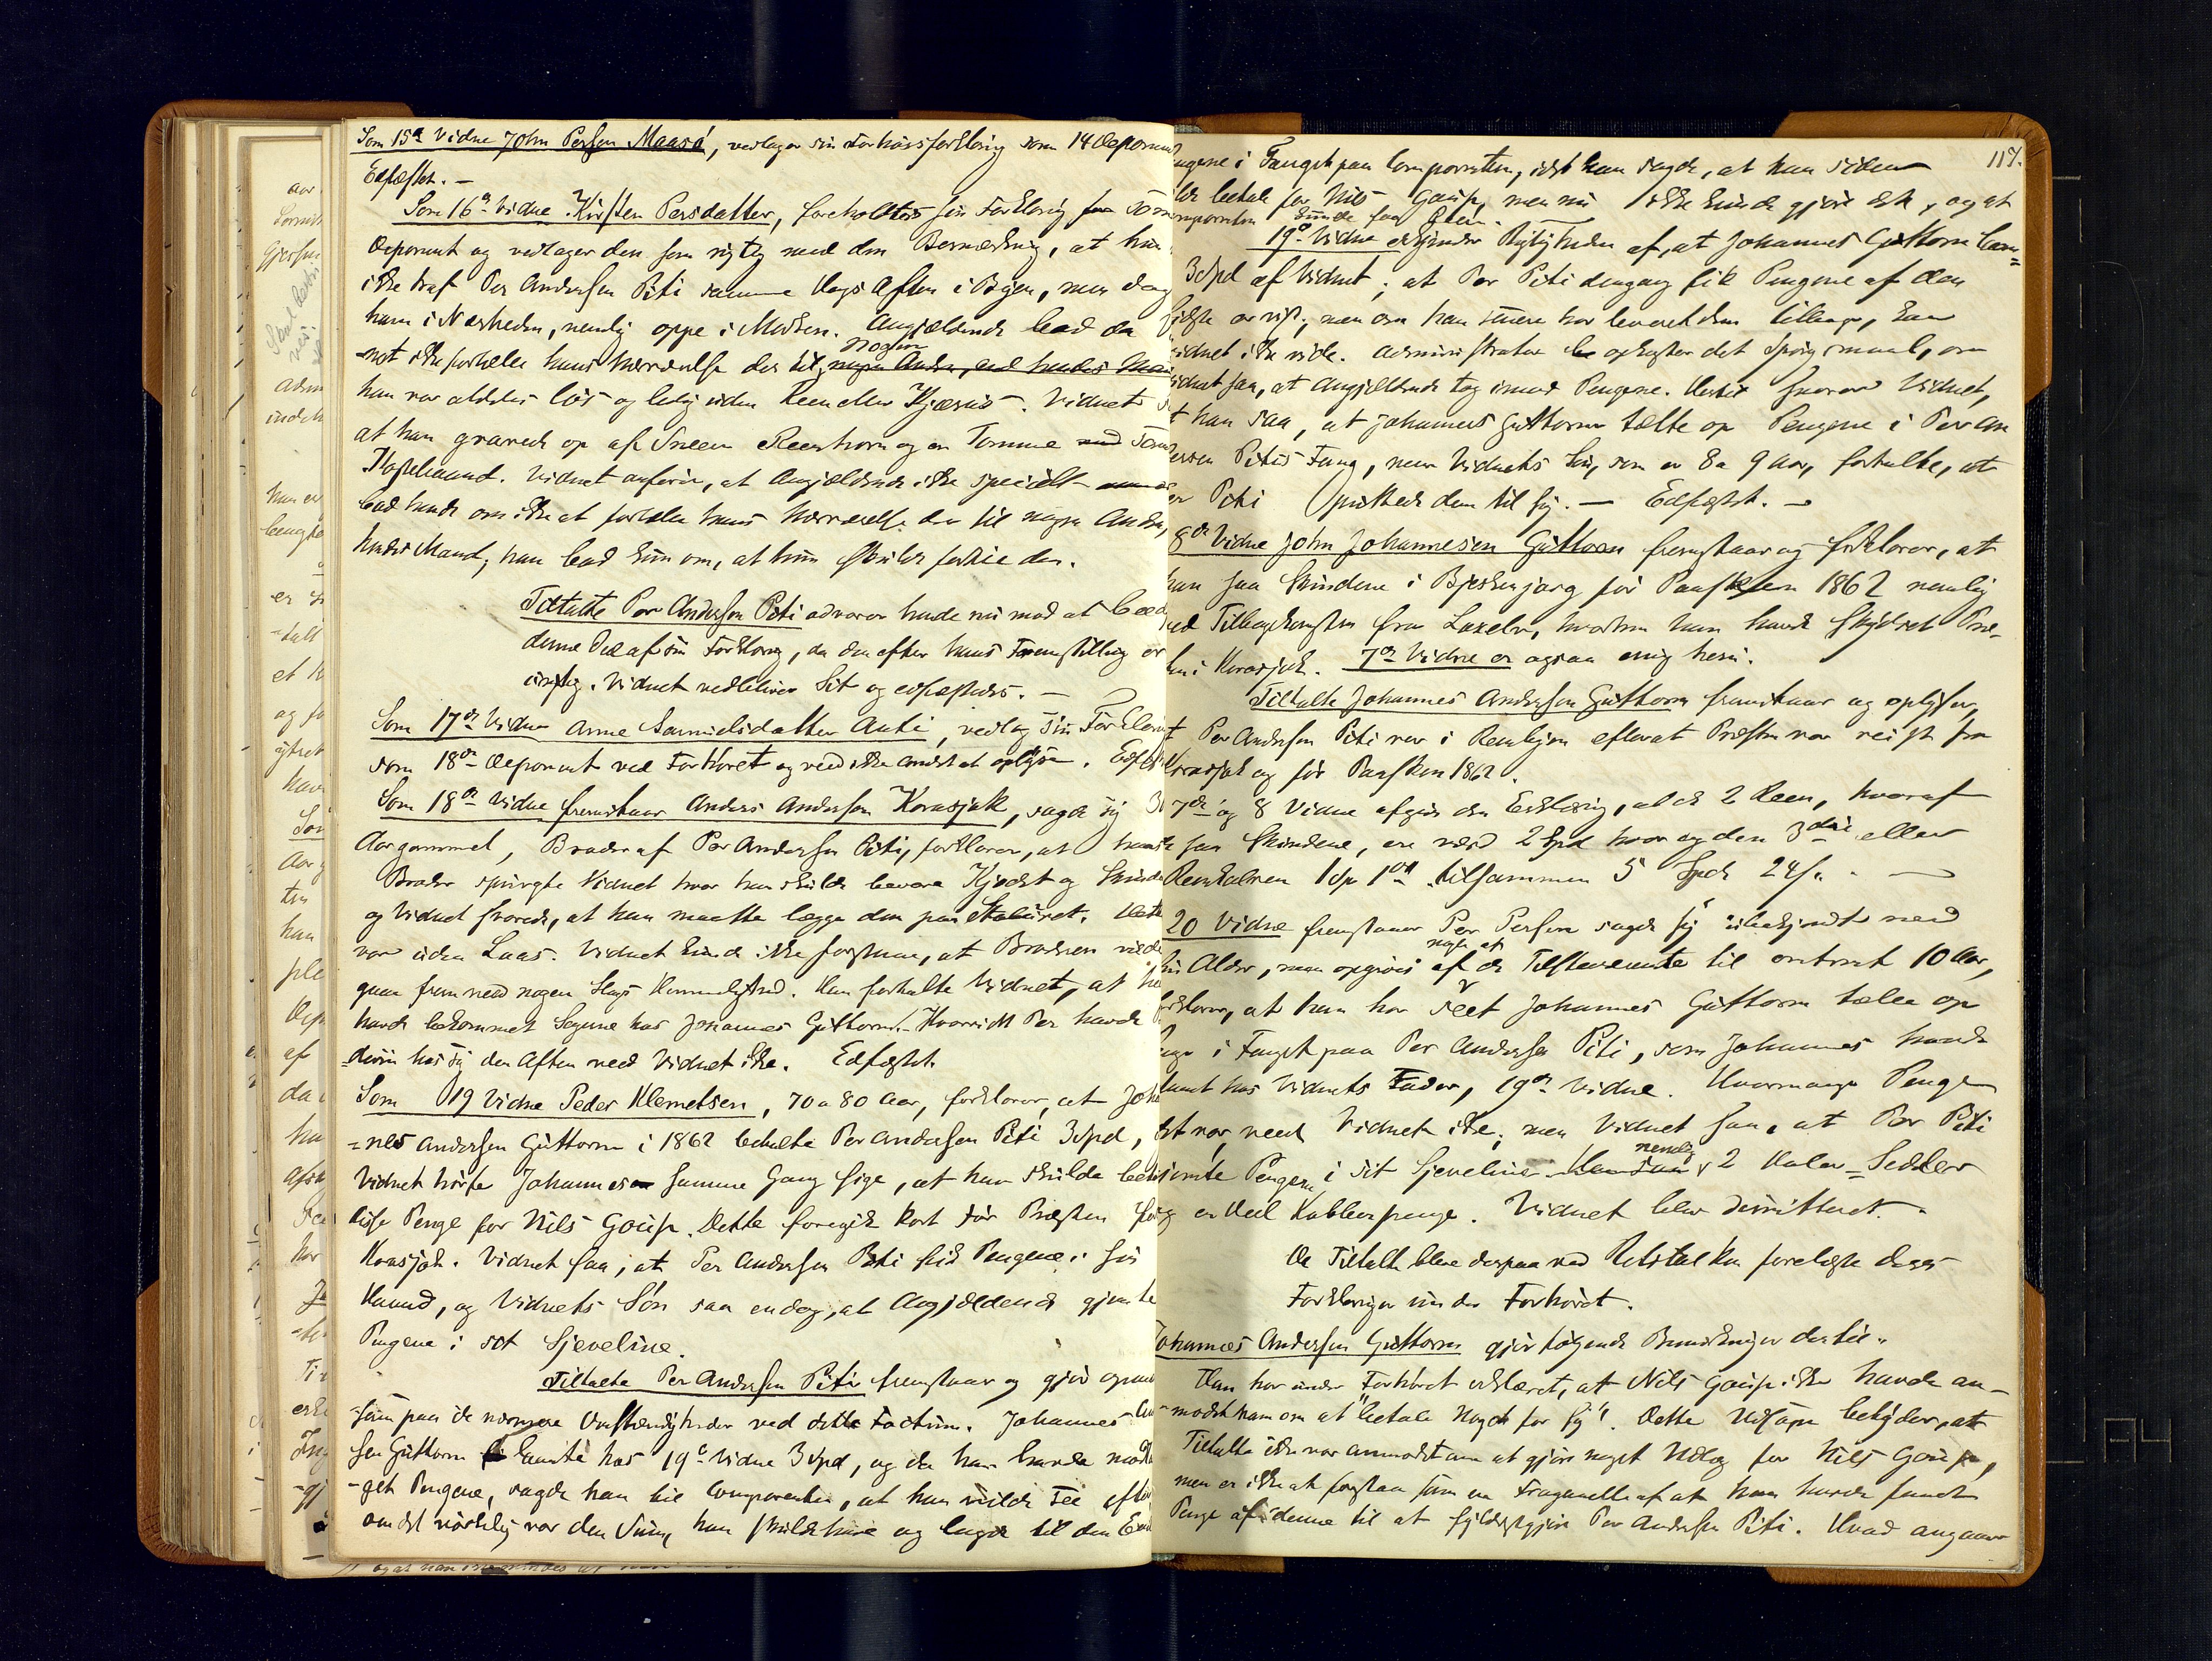 Som 15de Vidne John Persen Maasø, vedtager sin Forhørsforklaring som 14 Deponent
Edfæstet. —
Som 16de Vidne Kirsten Persdatter, foreholdtes sin Forklaring som
Deponent og vedtager den som rigtig med den Bemærkning, at hun
ikke traf Per Andersen Piti samme Dags Aften i Byen, men dog
ham i Nærheden, nemlig oppe i Marken. Angjældende bad da
-net ikke fortælle hans Nærværelse der til nogen nogen Anden, end hendes Man
han var aldeles løs og ledig uden Reen eller Kjæris. Vidnet
at han gravede op af Sneen Reenhorn og en Tomme
Vidnet anfører, at Angjældende ikke specielt
bad hende om ikke at fortælle hans Nærværelse der til nogen Anden,
hendes Mand; han bad hun om, at hun skulde fortie den.
Tiltalte Per Andersen Piti advarer hende nu mod at
denne Deel af sin Forklaring, da den efter hans Fremstilling er
urigtig. Vidnet vedbliver Sit og edfæstedes. —
Som 17de Vidne Anne Samuelsdatter Anti, vedtog sin Forklaring
som 18de Deponent ved Forhøret og veed ikke andet at oplyse. Edfæstet
Som 18de Vidne fremstaar Anders Andersen Korasjok, sagde sig 3
Aar gammel, Broder af Per Andersen Piti, forklarer, at hans
Broder spurgte Vidnet hvor han skulde bevare Kjødet og Skinde
og Vidnet svarede, at han maatte lægge dem paa Stabüret. Dette
var uden Laas. Vidnet kunde ikke forstaae, at Broderen vilde
gaae frem med nogen Slags Hemmelighed. Han fortalte Vidnet, at
havde bekommet Sagerne hos Johannes Guttorm. Hvorvidt Per havde
hos sig den Aften veed Vidnet ikke. Edfæstet.
Som 19 Vidne Peder Klemetsen, 70 a 80 Aar, forklarer, at Joha
=nes Andersen Guttorm i 1862 betalte Per Andersen Piti 3 Spd,
Vidnet hørte Johannes samme Gang sige, at han skulde beta
disse Penge for Nils Gaup. Dette foregik kort før Præsten
Korasjok. Vidnet saa, at Per Andersen Piti fik Pengene i sin
Haand, og Vidnets Søn saa endog, at Angjældende gjemte
Pengene i sit Sjeveline.
Tiltalte Per Andersen Piti fremstaar og gjør opmærk
-som paa de nærmere Omstændigheder ved dette Factum. Johannes An
sen Guttorm laante hos 19de Vidne 3 Spd, og da han havde modta
-get Pengene, sagde han til Comparenten, at han vilde see efter
om det virkelig var den Sum, han skulde have og lagde til den
117.
Pengene i Fanget paa Comparenten, idet han sagde, at han siden
vilde betale for Nils Gaup, men nu ikke kunde gjøre det, og at
Comparenten kunde faa
19de Vidne erkjender Rigtigheden af, at Johannes Guttorm laan=
3 Spd af Vidnet; at Per Piti dengang fik Pengene af den
sidste er vist; men om han senere har leveret dem tilbage, kan
Vidnet ikke vide. Administrator opkaster det Spørgsmaal, om
Vidnet saa, at Angjældende tog imod Pengene. Hertil svarer Vidnet,
at han saa, at Johannes Guttorm talte op Pengene i Per An
dersen Pitis Fang, men Vidnets Søn, som er 8 a 9 Aar, fortalte, at
Per Piti puttede dem til sig. — Edfæstet. —
8de Vidne John Johannesen Guttorm fremstaar og forklarer, at
han saa Skindene i Bjeskenjarg før Paasken 1862 nemlig
ved Tilbagekomsten fra Laxelv, hvorhen han havde skydset Præ-
sten i Korasjok. 7de Vidne er ogsaa enig heri.
Tiltalte Johannes Andersen Guttorm fremstaar og oplyser,
at Per Andersen Piti var i Reenbyen efterat Præsten var reist fra
Korasjok og før Paasken 1862.
7de og 8 Vidne afgiver den Erklæring, at de 2 Reen, hvoraf
de saa Skindene, ere værd 2 Spd hver og den 3die eller
Reenkalven 1 Spd tilsammen 5 Spd 24 s. —
20 Vidne fremstaar Per Persen sagde sig ubekjendt med
sin Alder, men opgives af nogle af de Tilstedeværende til omtrent 10 Aar,
forklarer, at han har seet Johannes Guttorm tælle op
Penge i Fanget paa Per Andersen Piti, som Johannes havde
laant hos Vidnets Fader, 19de Vidne. Hvormange Penge
det var, veed Vidnet ikke; men Vidnet saa, at Per Piti
gjemte Pengene i sit Sjeveline nemlig 2 Daler=Sedler
og en Deel Kobberpenge. Vidnet blev dimitteret.
De Tiltalte bleve derpaa ved Rettstolken forelæste deres
Forklaringer under Forhøret.
Johannes Andersen Guttorm gjør følgende Bemærkninger dertil.
Han har under Forhøret erklæret, at Nils Gaup ikke havde an-
modet ham om at "betale Noget for sig". Dette Udsagn betyder, at
Tiltalte ikke var anmodet om at gjøre noget Udlæg for Nils Gaup,
men er ikke at forstaa som en Fragaaelse af at han havde faaet
Penge af denne til at fyldestgjøre Per Andersen Piti. Hvad angaaer